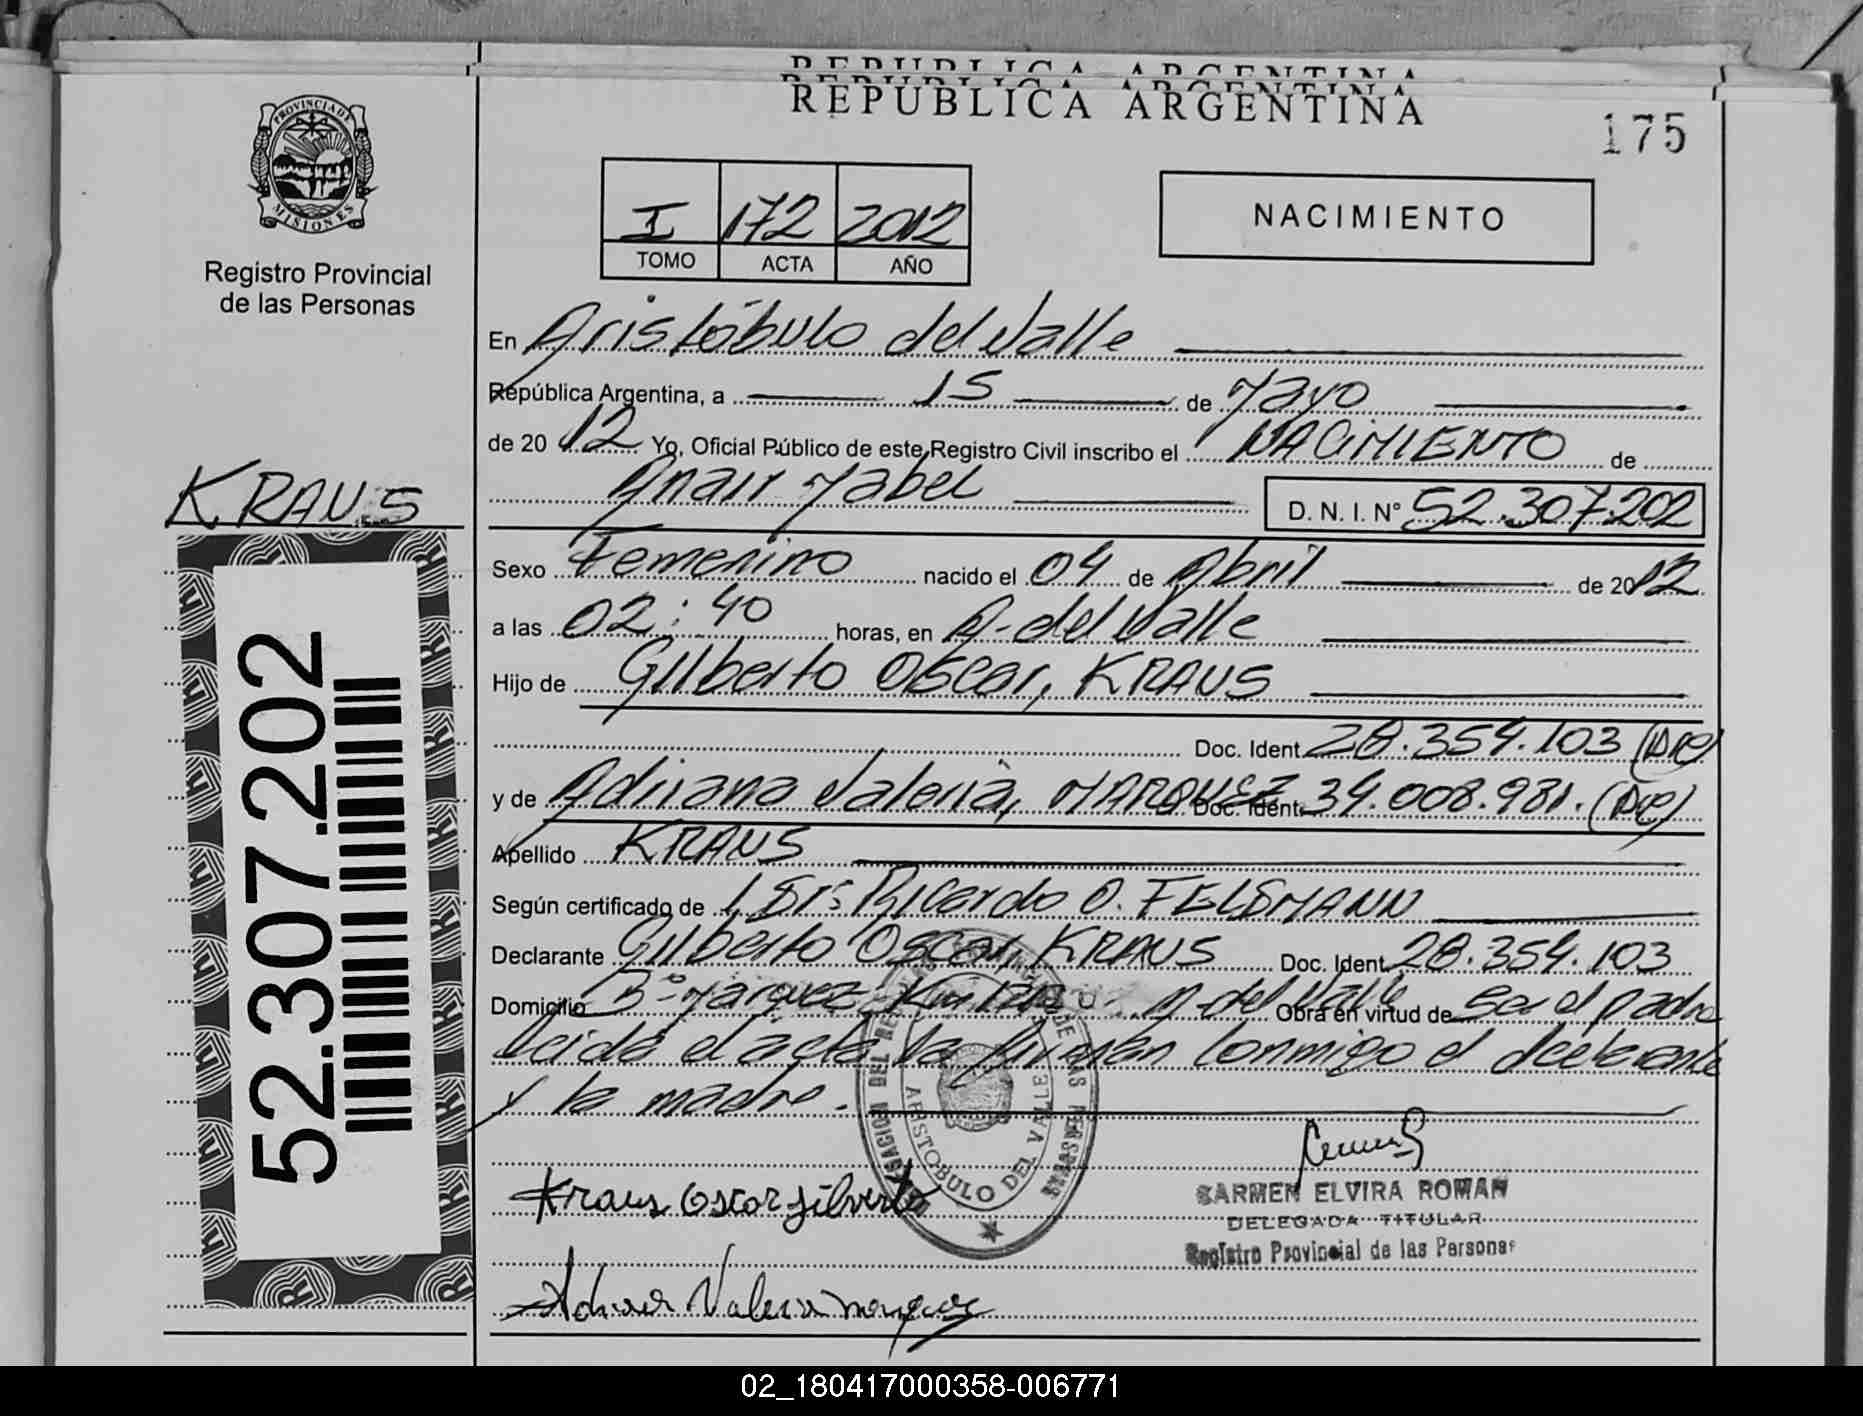 REPUBLICA ARGENTINA
REPUBLICA ARGENTINA
REPUBLICA ARGENTINA
175
PROVINCIA DE MISIONES
Registro Provincial
de las Personas
I 172 2012
TOMO ACTA AÑO
NACIMIENTO
En Aristóbulo del Valle
República Argentina, a 15 de Mayo
de 2012 Yo, Oficial Público de este Registro Civil inscribo el NACIMIENTO de
KRAUS
Anair Mabel D. N. I. N° 52.307.202
Sexo Femenino nacido el 04 de Abril de 2012
a las 02:40 horas, en A. del Valle
Hijo de Gilberto Oscar, KRAUS
Doc. Ident. 28.354.103 (Arg)
y de Adriana Valeria, MARQUEZ Doc. Ident. 34.008.981. (Arg)
Apellido KRAUS
Según certificado de Dr: Ricardo O. FELDMANN
Declarante Gilberto Oscar, KRAUS Doc. Ident. 28.354.103
Domicilio B° Marquez Km A. del Valle Obra en virtud de Ser el padre
leida el acta la firman conmigo el declarante
y la madre.
52.307.202
DELEGACION DEL REGISTRO PROVINCIAL DE LAS PERSONAS
ARISTOBULO DEL VALLE
Kraus Oscar Gilverto
CARMEN ELVIRA ROMAN
DELEGADA TITULAR
Registro Provincial de las Personas
Adriana Valeria Marquez
02_180417000358-006771